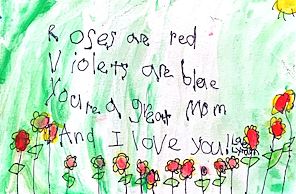 Roses are red
Violets are blue
You're a great Mom
And I love you!